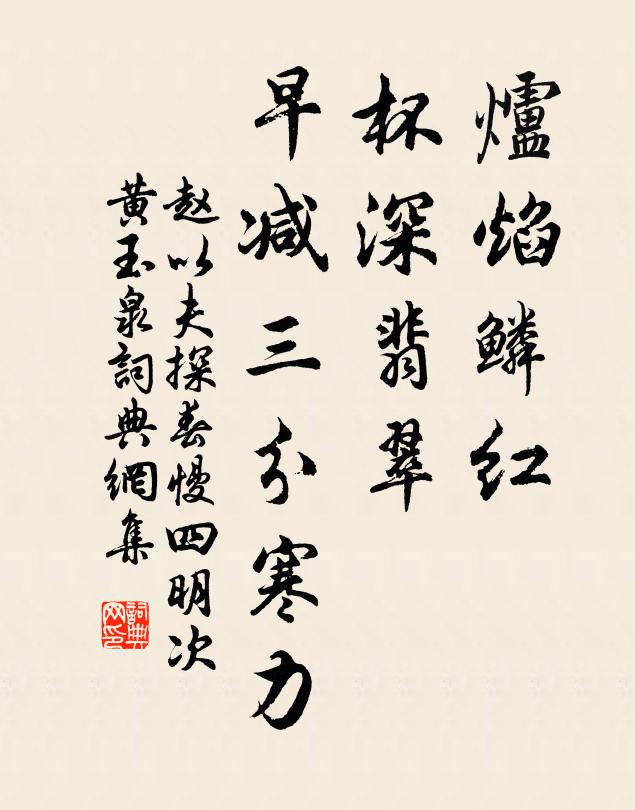 爐焰鱗红
杯深翡翠
早减三分寒力
赵以夫探春慢四明次
黄玉泉詞典網集
詞典网印